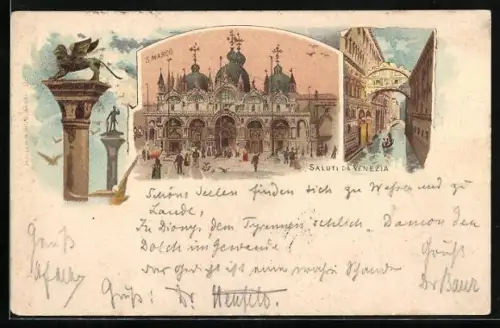 S. MARCO
SALUTI DA VENEZIA
Schöne Seelen finden sich zu Wasser und zu
Lande,
Zu Dionys dem Tyrannen schlich Damon den
Dolch im Gewande!
das Gedicht ist eine wahre Schande
Gruß
Gruß
Dr Baur
Gruß: Dr.